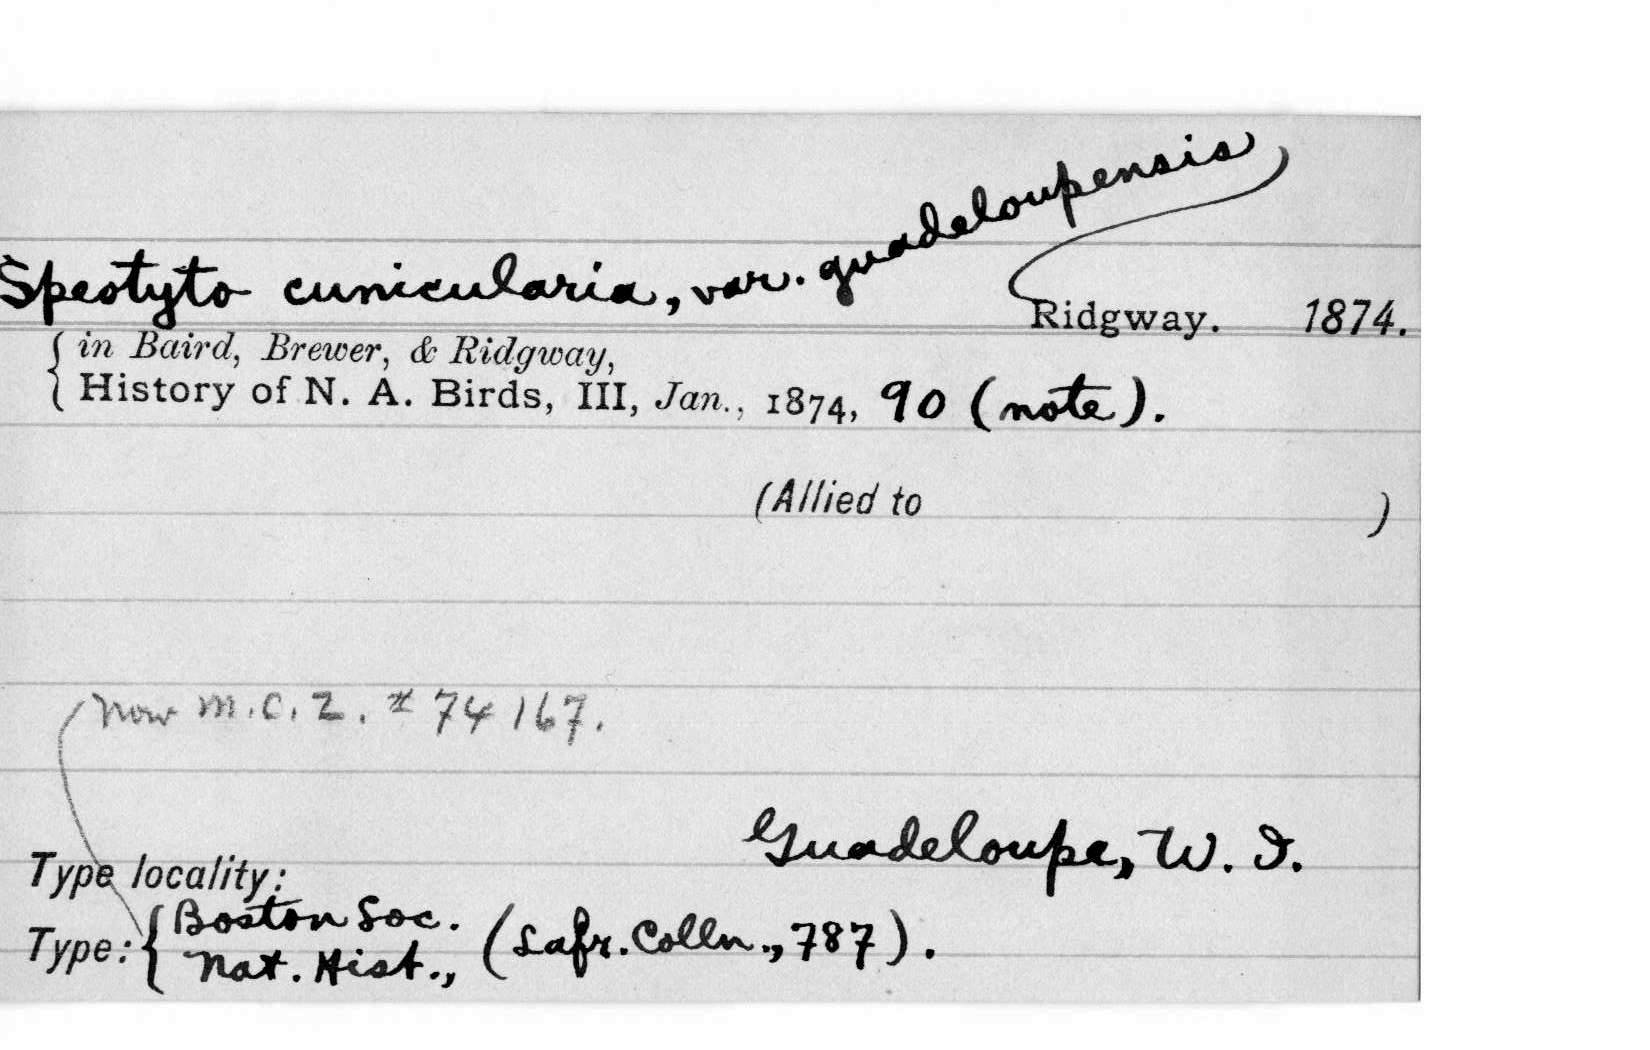 Speotyto cunicularia, var. guadeloupensis
Ridgway. 1874.
in Baird, Brewer, & Ridgway,
History of N. A. Birds, III, Jan., 1874, 90 (note).
(Allied to )
Now M.C.Z. # 74167.
Guadeloupe, W. I.
Type locality:
Type: { Boston Soc.
Nat. Hist., (Lafr. Colln., 787).